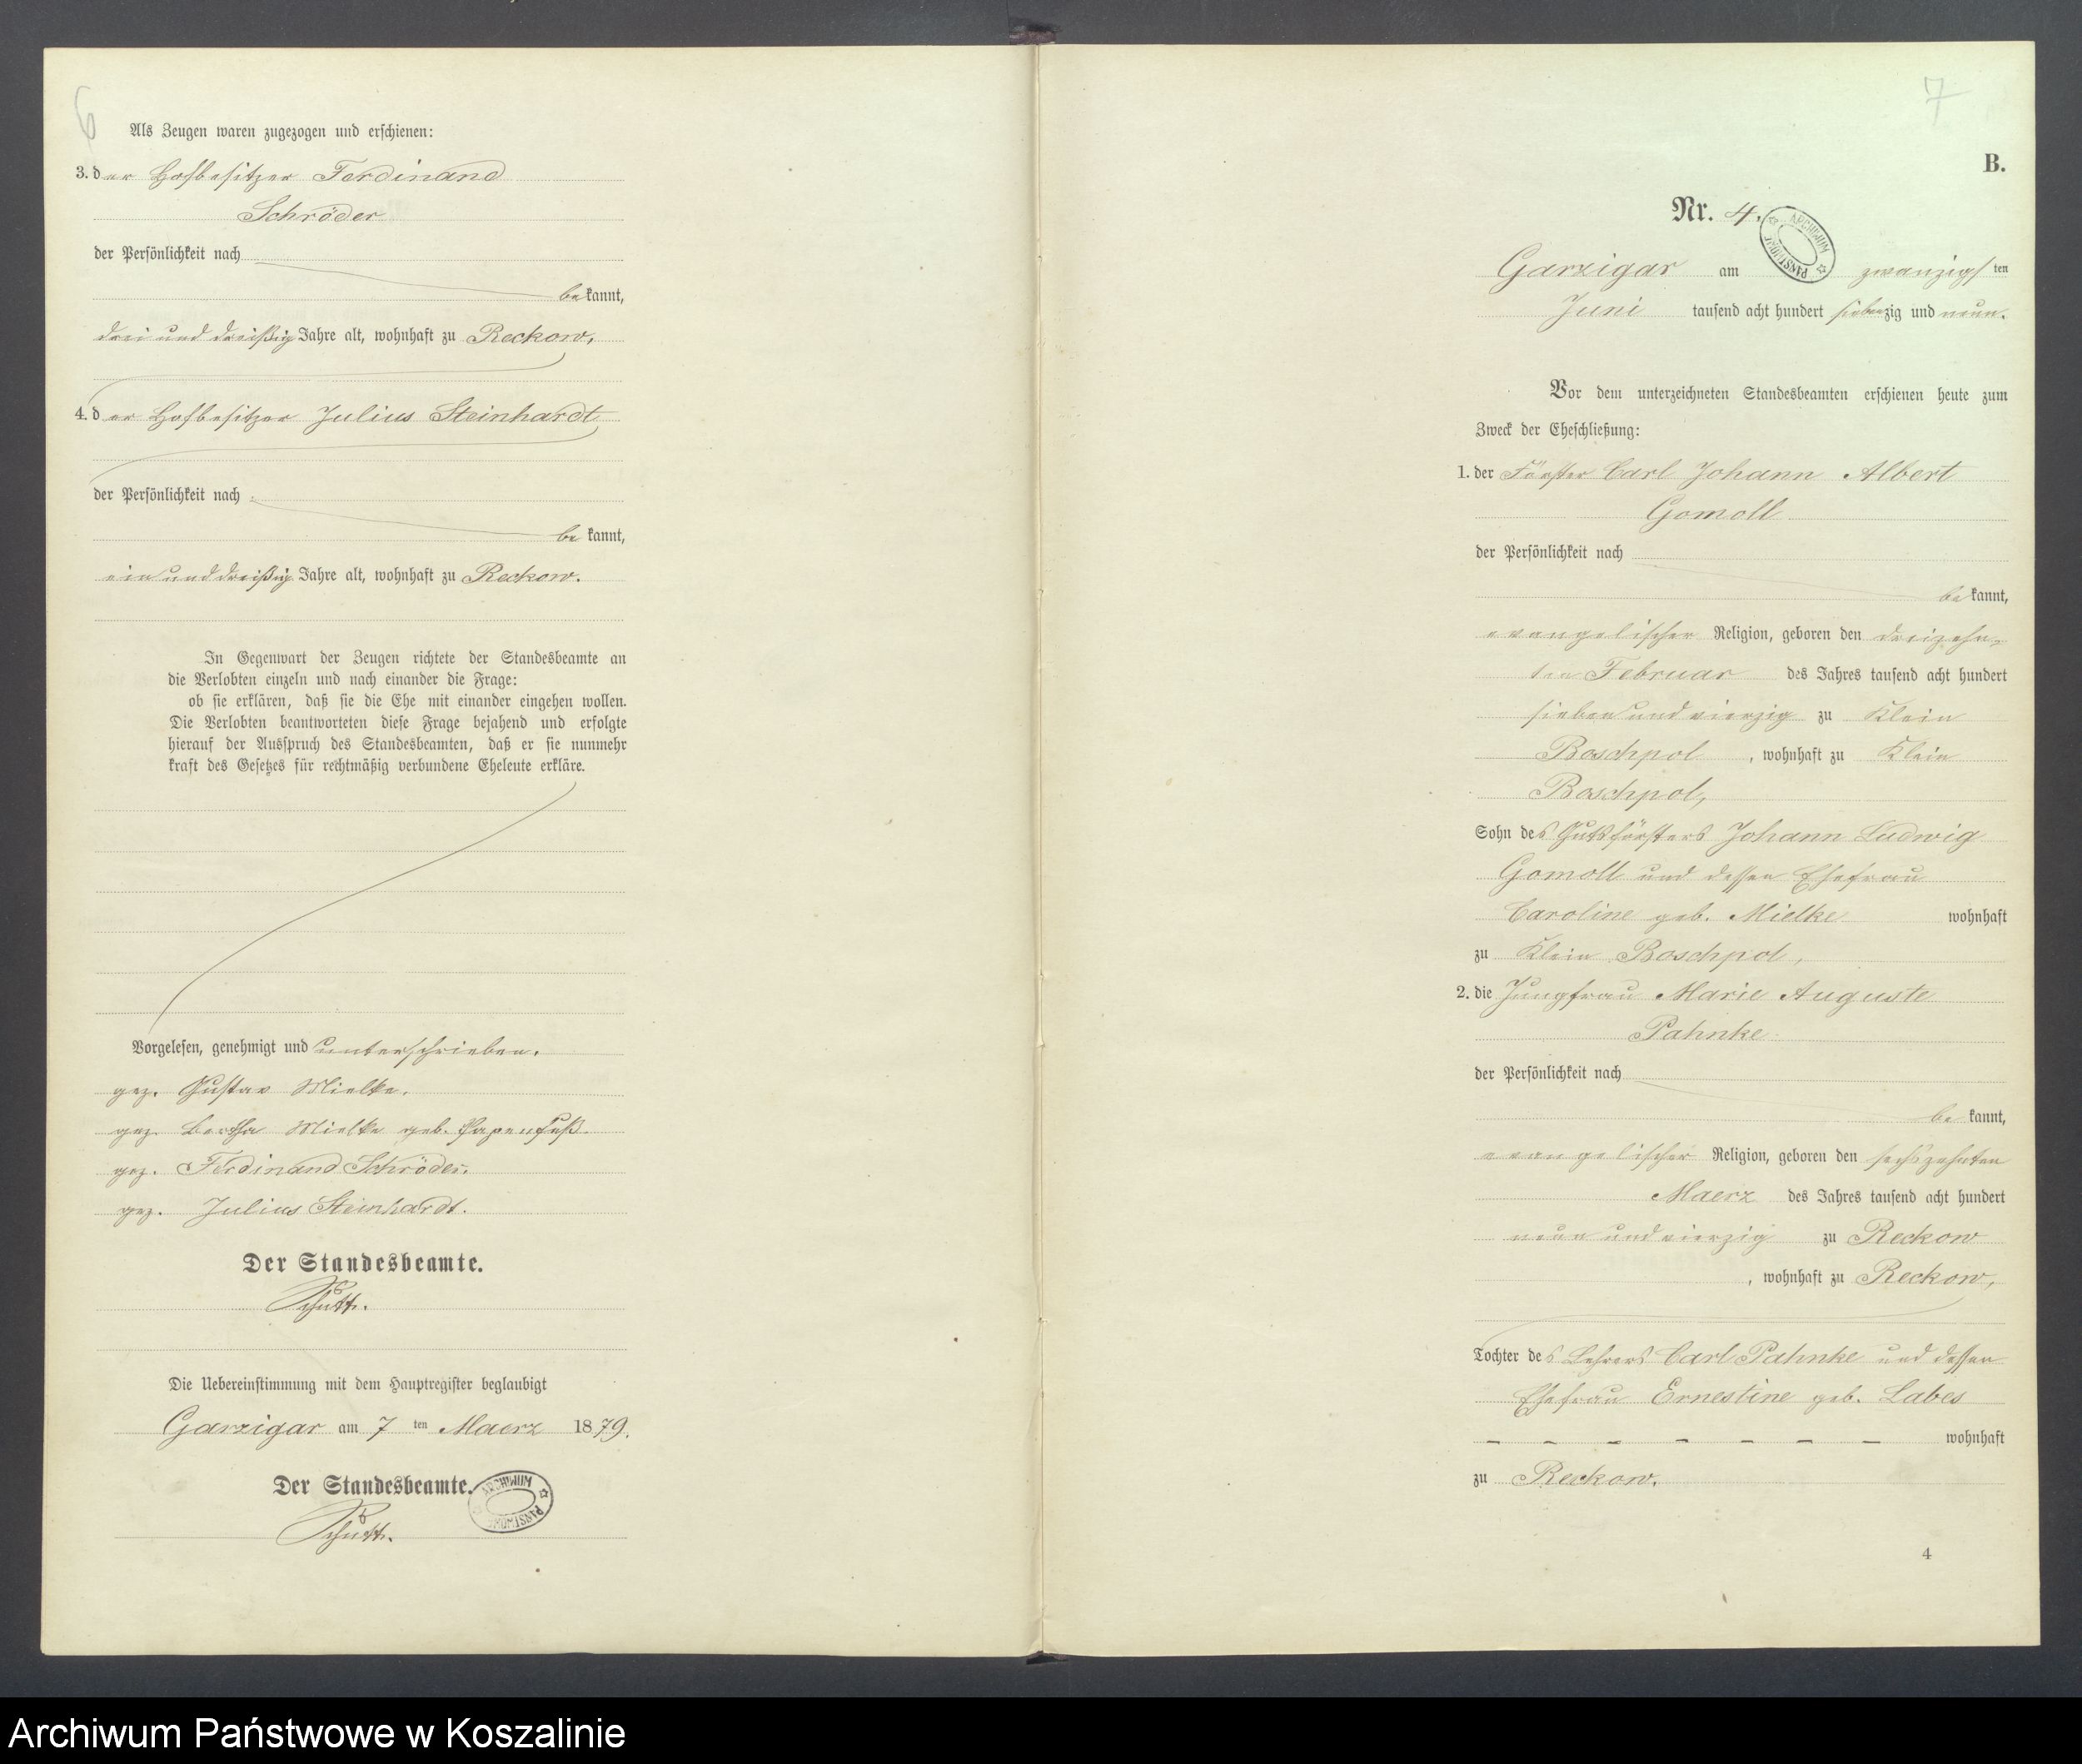 6
Als Zeugen waren zugezogen und erschienen:
3. der Hofbesitzer Ferdinand
Schröder
der Persönlichkeit nach
bekannt,
drei und dreißig Jahre alt, wohnhaft zu Reckow,
4. der Hofbesitzer Julius Steinhardt
der Persönlichkeit nach
be kannt,
ein und dreißig Jahre alt, wohnhaft zu Reckow.
In Gegenwart der Zeugen richtete der Standesbeamte an
die Verlobten einzeln und nach einander die Frage:
ob sie erklären, daß sie die Ehe mit einander eingehen wollen.
Die Verlobten beantworteten diese Frage bejahend und erfolgte
hierauf der Ausspruch des Standesbeamten, daß er sie nunmehr
kraft des Gesetzes für rechtmäßig verbundene Eheleute erkläre.
Vorgelesen, genehmigt und unterschrieben.
gez. Gustav Mielke.
gez. Bertha Mielke geb. Papenfuß.
gez. Ferdinand Schröder.
gez. Julius Steinhardt.
Der Standesbeamte.
Schutt.
Die Uebereinstimmung mit dem Hauptregister beglaubigt
Garzigar am 7 ten Maerz 1879.
Der Standesbeamte.
ARCHIWUM PAŃSTWOWE
Schutt.
7
B.
Nr. 4.
ARCHIWUM PAŃSTWOWE
Garzigar am zwanzigsten
Juni tausend acht hundert siebenzig und neun.
Vor dem unterzeichneten Standesbeamten erschienen heute zum
Zweck der Eheschließung:
1. der Förster Carl Johann Albert
Gomoll
der Persönlichkeit nach
bekannt,
evangelischer Religion, geboren den dreizehn-
ten Februar des Jahres tausend acht hundert
sieben und vierzig zu Klein
Boschpol, wohnhaft zu Klein
Boschpol,
Sohn des Gutsförsters Johann Ludwig
Gomoll und dessen Ehefrau
Caroline geb. Mielke wohnhaft
zu Klein Boschpol,
2. die Jungfrau Marie Auguste
Pahnke
der Persönlichkeit nach
be kannt,
evangelischer Religion, geboren den sechszehnten
Maerz des Jahres tausend acht hundert
neun und vierzig zu Reckow
, wohnhaft zu Reckow,
Tochter des Lehrers Carl Pahnke und dessen
Ehefrau Ernestine geb. Labes
– – – – – – – wohnhaft
zu Reckow.
4
Archiwum Państwowe w Koszalinie